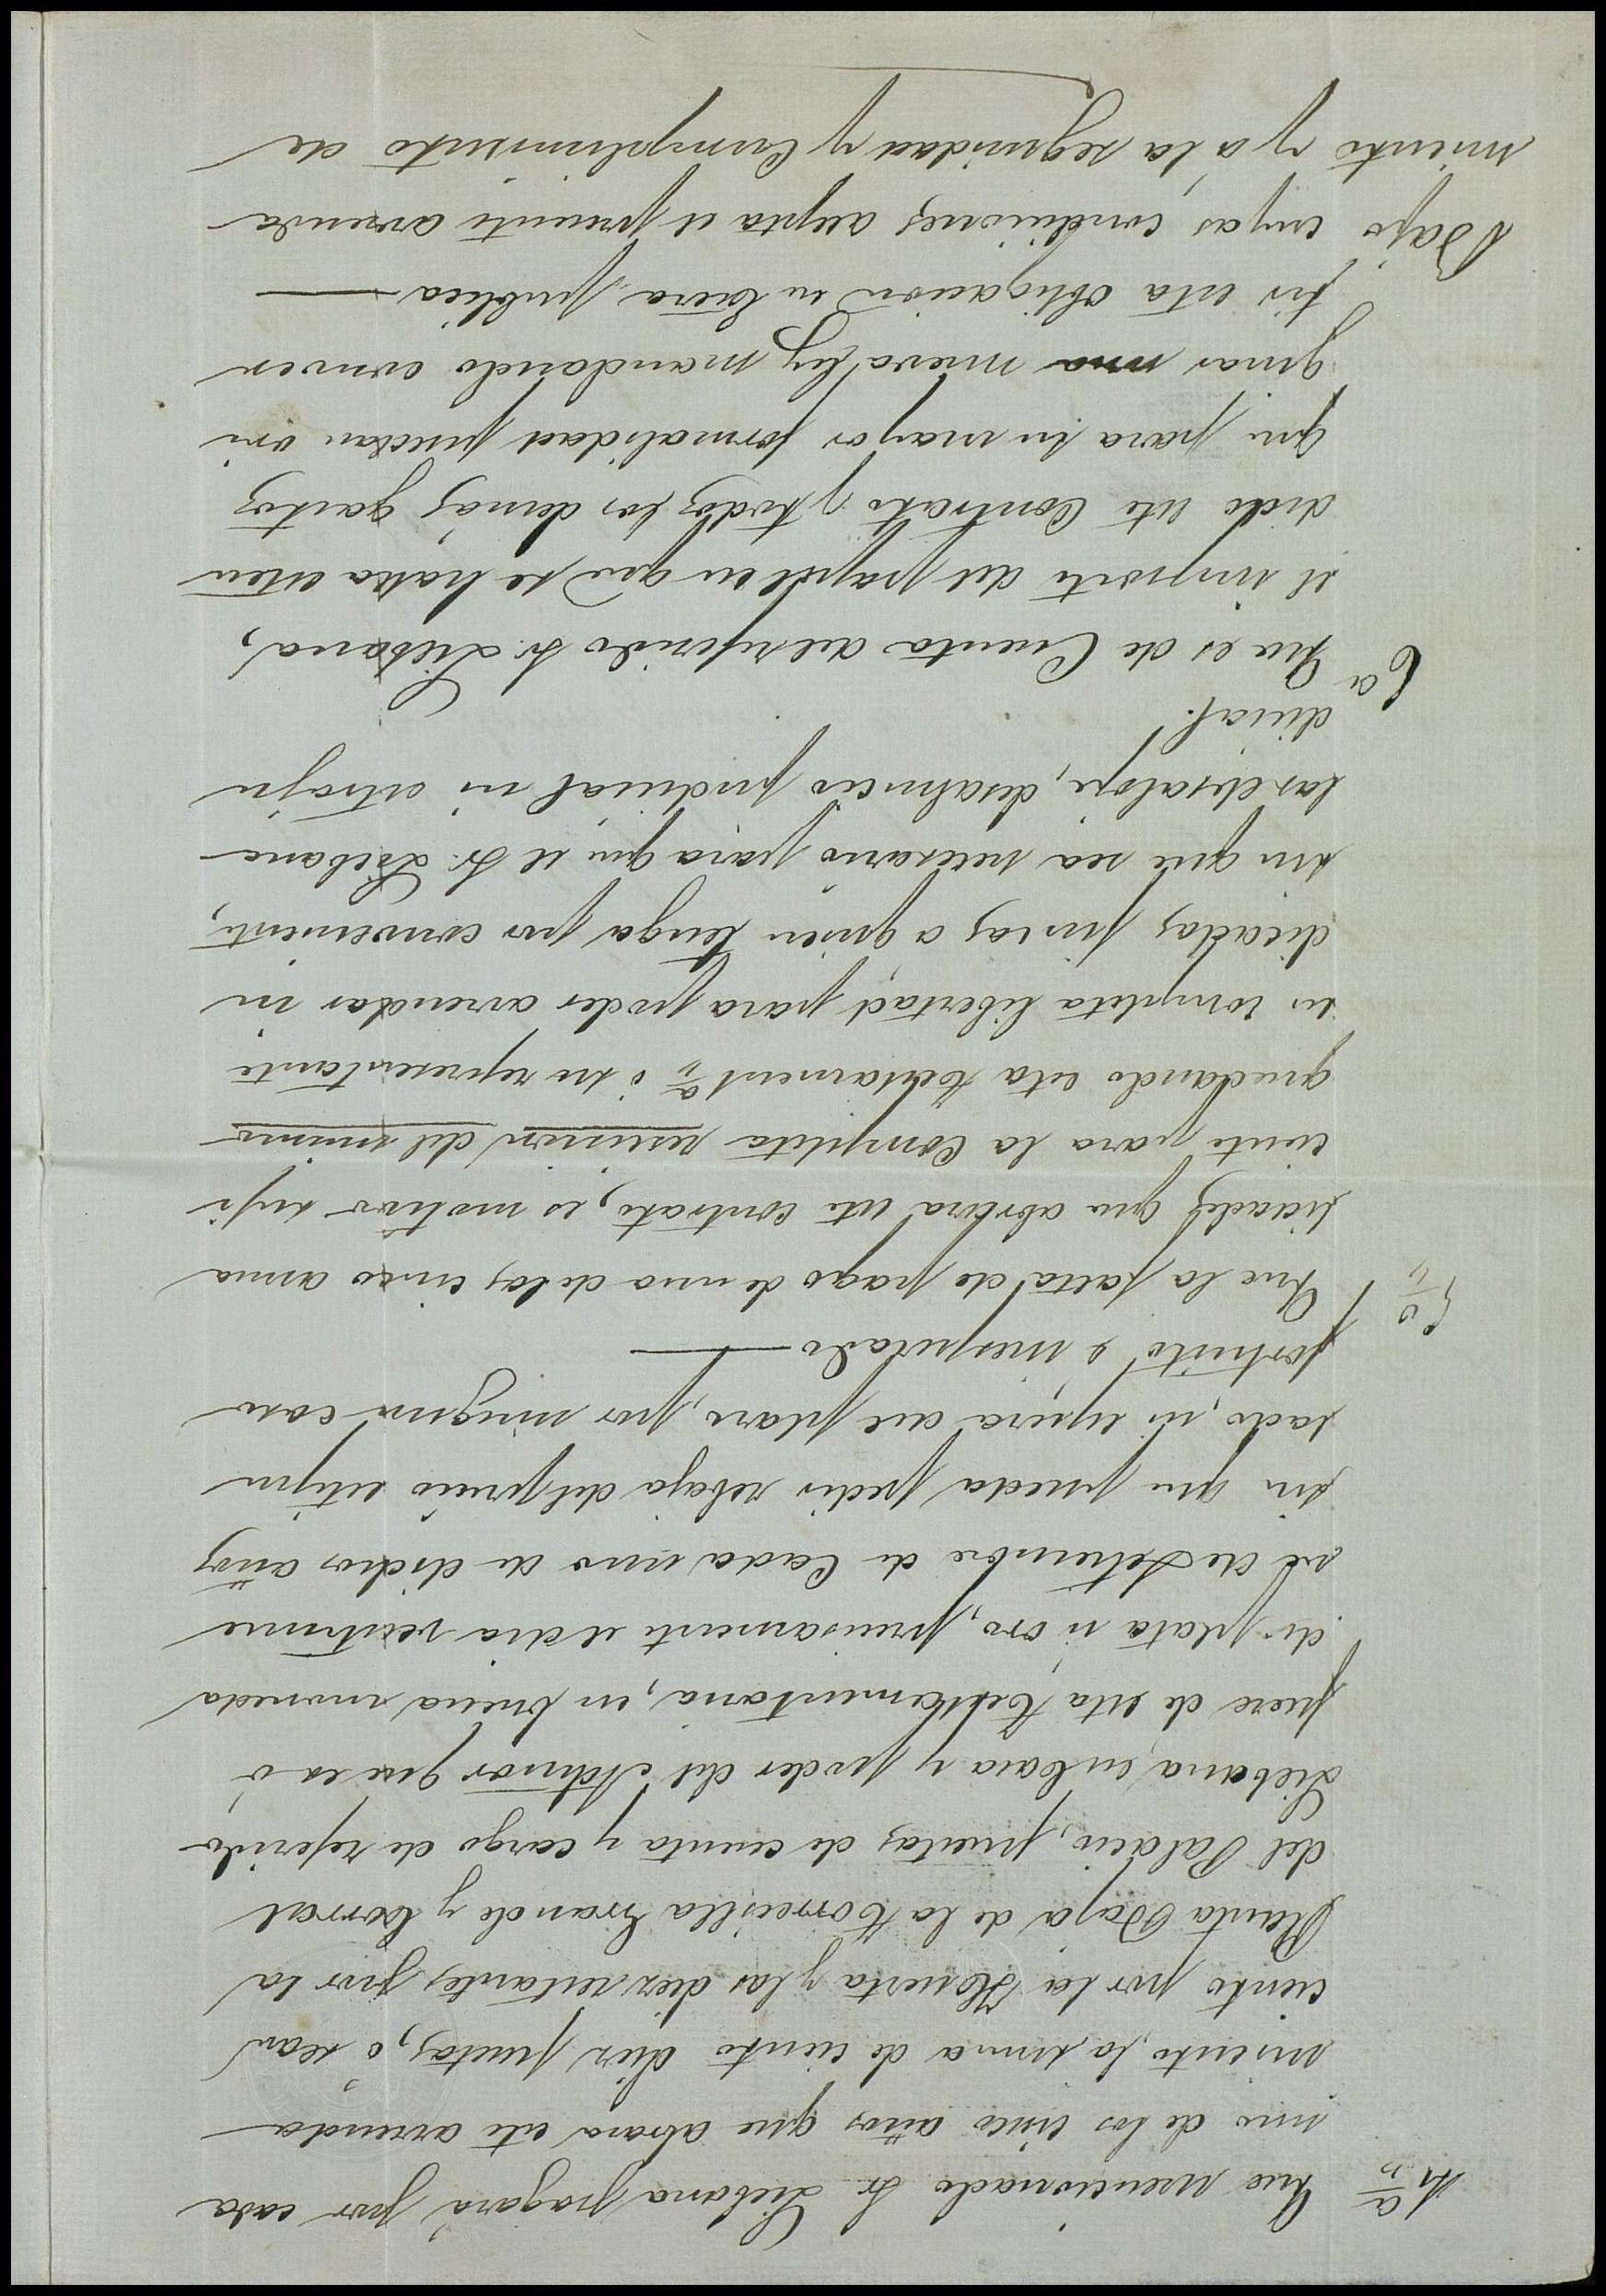 4ª Que mencionado Sr Liebana pagará por cada
uno de los cinco años que abraza este arrenda
miento, la suma de ciento diez pesetas, ó sean
ciento por la Huerta y las diez restantes por la
Planta Baja de la Torrecilla Grande y Corral
del Palacio, puestas de cuenta y cargo de referido
Liebana, en Casa y poder del Admor que es ó
fuere de esta Testamentaria, en buena moneda
de plata ú oro, precisamente el dia veintinue
ve de Setiembre de Cada uno de dichos años
sin que pueda pedir rebaja del precio estipu
lado, ni espera del plazo, por ningun caso
fortuito ó inesperado
5ª Que la falta de pago de una de las cinco anua
lidades que abraza este contrato, es motivo sufi
ciente para la Completa rescision del mismo
quedando esta Testament.ª ó su representante
en completa libertad para poder arrendar in
dicadas fincas a quien tenga por conveniente,
sin que sea necesario para que el Sr. Liebana
las desaloje, desahucio judicial ni estraju
dicial.
6ª Que es de Cuenta del referido Sr. Liebana,
el importe del papel en que se halla esten
dido este Contrato y todos los demás gastos
que para su mayor formalidad puedan ori
ginar una nueva ley mandando conver
tir esta obligacion en Escra publica
Bajo cuyas condiciones acepta el presente arrenda
miento y á la seguridad y Cumplimiento de